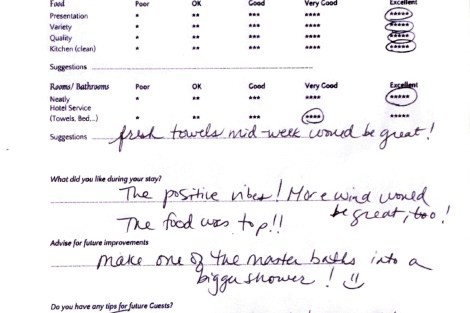 Food Poor OK Good Very Good Excellent
Presentation * ** *** **** *****
Variety * ** *** **** *****
Quality * ** *** **** *****
Kitchen (clean) * ** *** **** *****
Suggestions
Rooms/ Bathrooms Poor OK Good Very Good Excellent
Neatly * ** *** **** *****
Hotel Service
(Towels, Bed,..) * ** *** **** *****
Suggestions fresh towels mid-week would be great!
What did you like during your stay?
The positive vibes! More wind would
be great, too!
The food was top!!
Advise for future improvements
make one of the master baths into a
bigger shower! :)
Do you have any tips for future Guests?